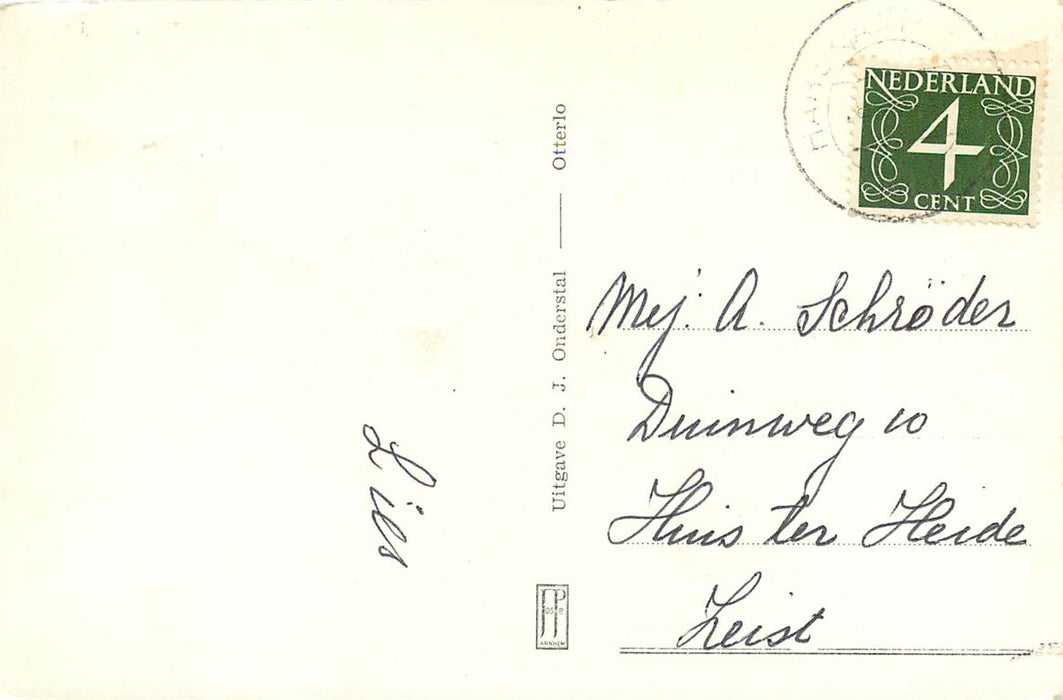 NEDERLAND
4
CENT
Uitgave D. J. Onderstal — Otterlo
Mej. A. Schröder
Duinweg 10
Huis ter Heide
Zeist
Lies
ARNHEM